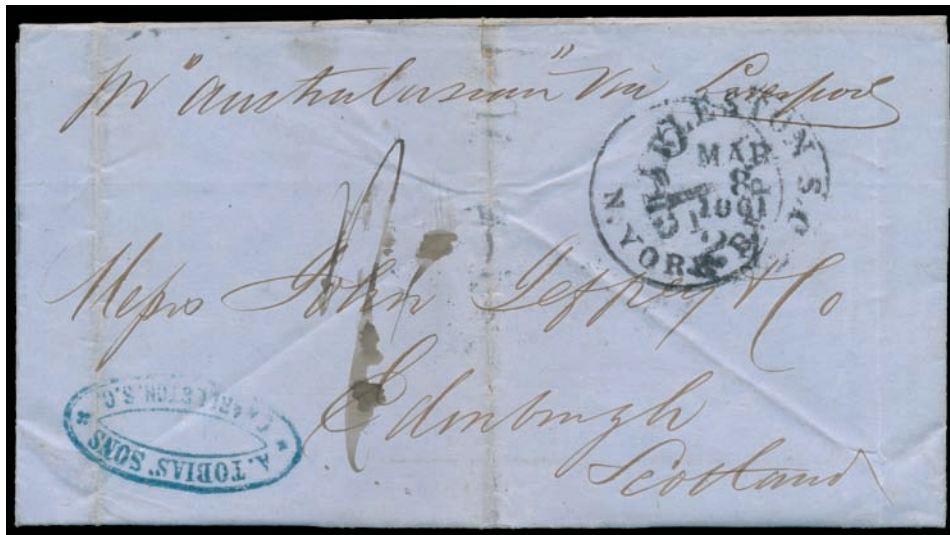 pr "Australasian" Via Liverpool
CHARLESTON S.C.
MAR
8
1861
N. YORK BR. PKT
Messrs John Jeffrey & Co
Edinburgh
Scotland
A. TOBIAS' SONS
CHARLESTON, S.C.